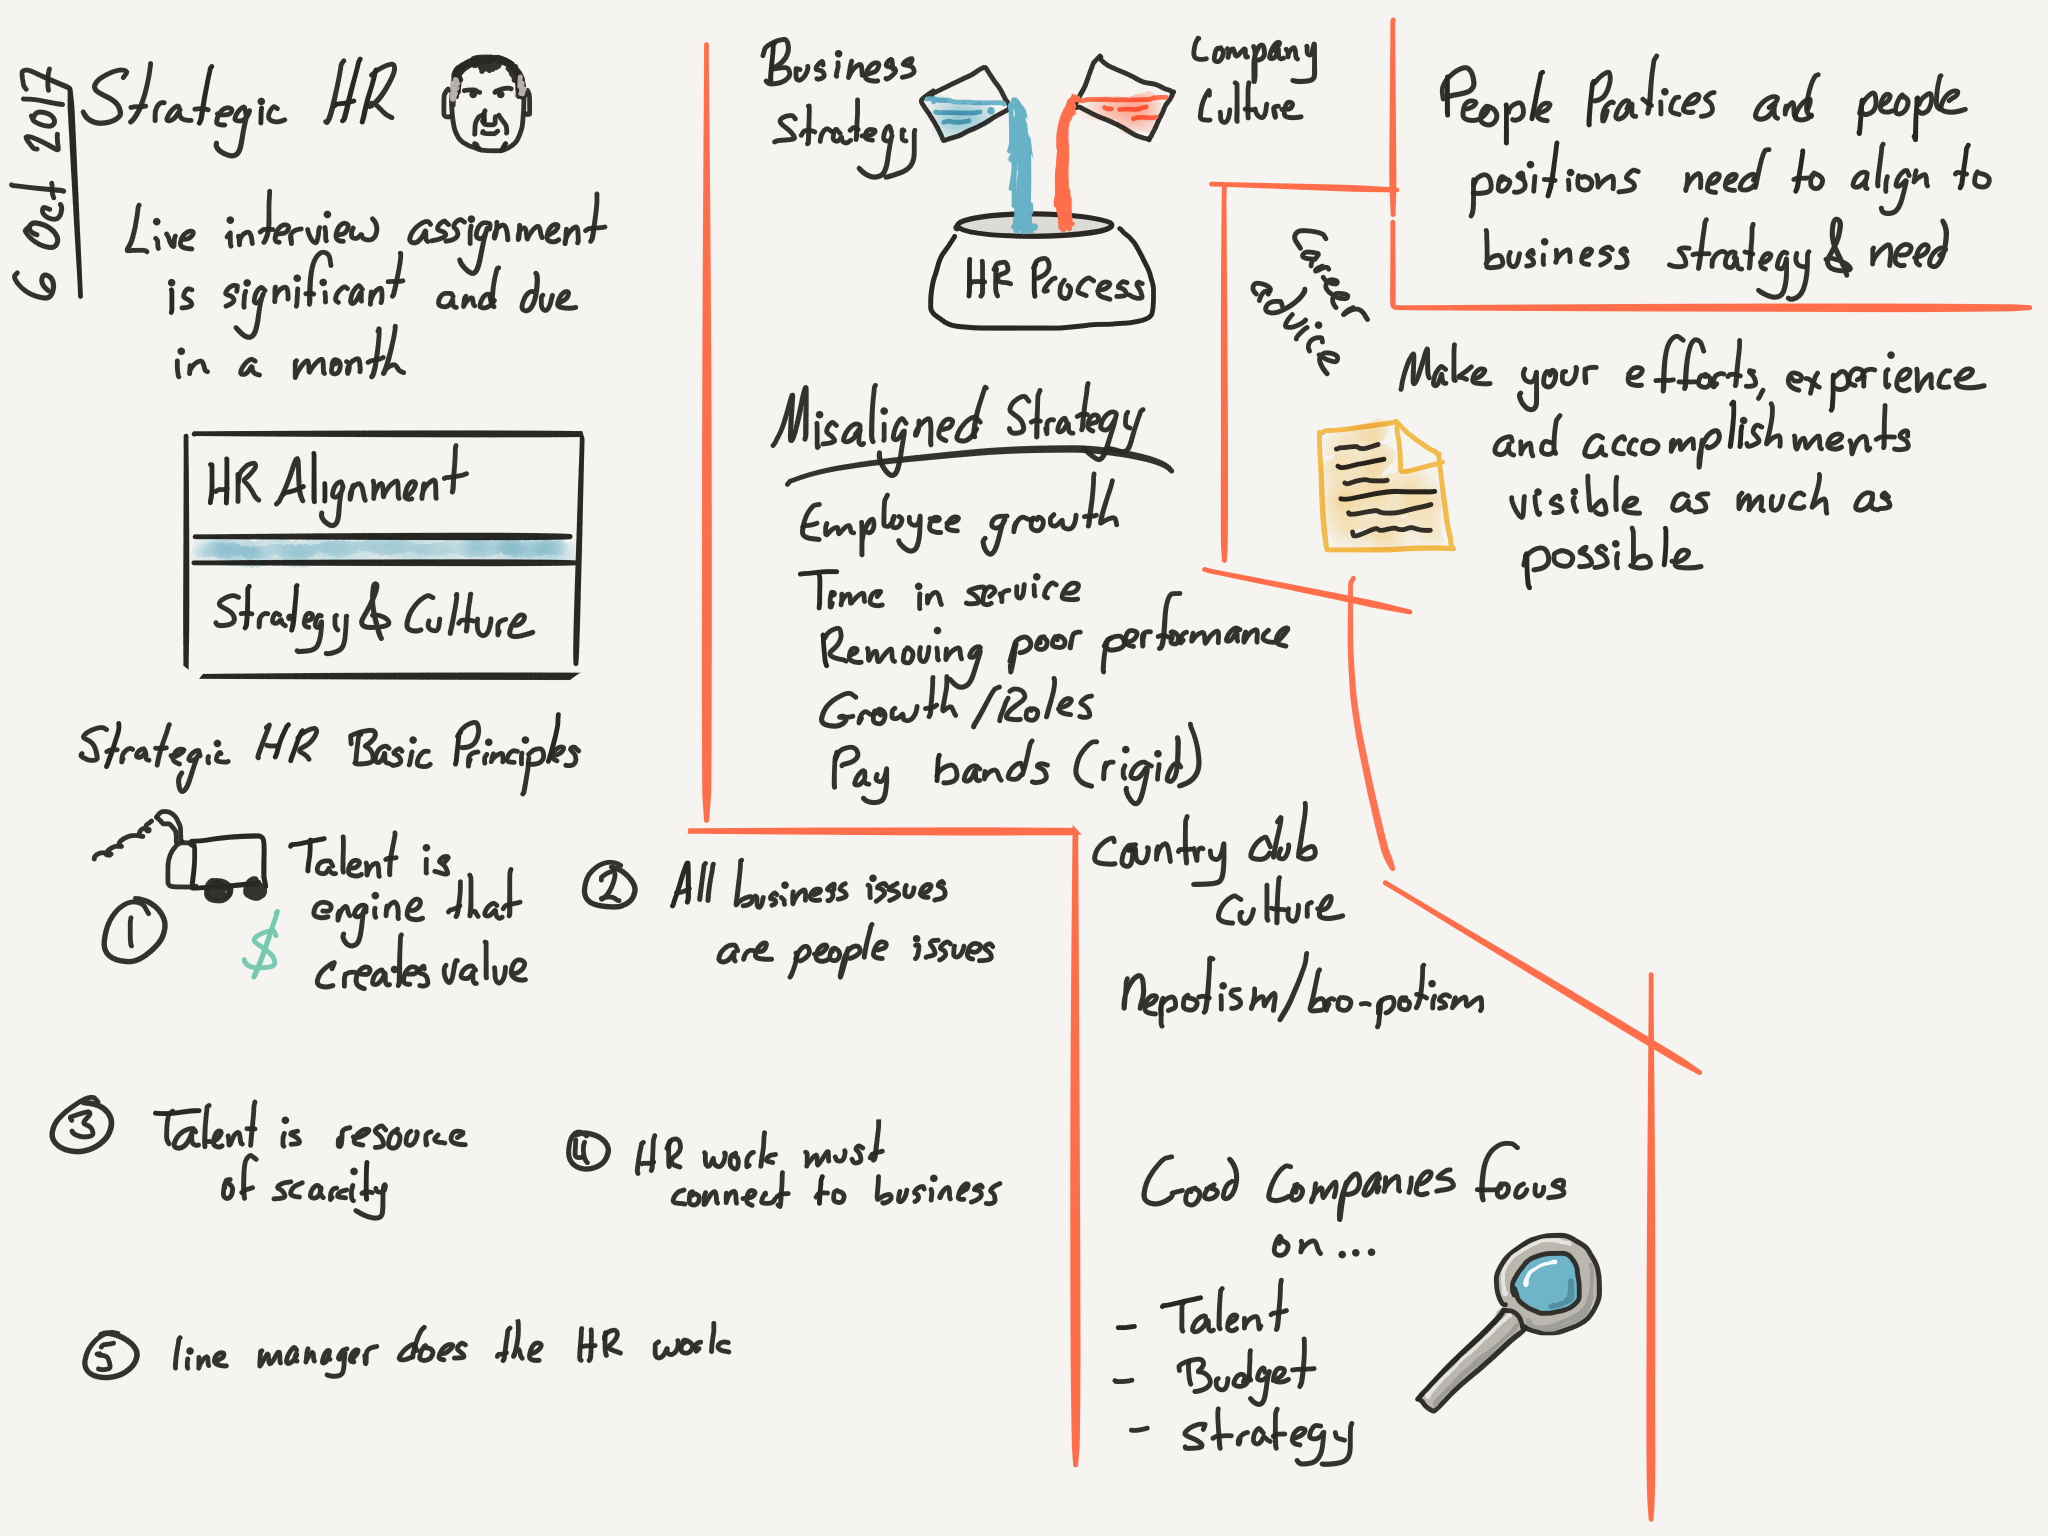 6 Oct 2017
Strategic HR
Live interview assignment
is significant and due
in a month
HR Alignment
Strategy & Culture
Strategic HR Basic Principles
1
$
Talent is
engine that
creates value
2 All business issues
are people issues
3 Talent is resource
of scarcity
4 HR work must
connect to business
5 line manager does the HR work
Business
Strategy
Company
Culture
HR Process
Misaligned Strategy
Employee growth
Time in service
Removing poor performance
Growth/Roles
Pay bands (rigid)
Country club
culture
Nepotism/bro-potism
Good Companies focus
on...
- Talent
- Budget
- Strategy
People Pratices and people
positions need to align to
business strategy & need
Career
advice
Make your efforts, experience
and accomplishments
visible as much as
possible